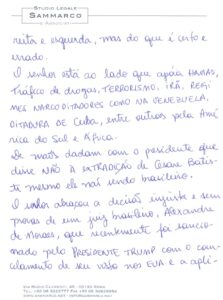 STUDIO LEGALE
SAMMARCO
E ASSOCIATI
reita e esquerda, mas do que é certo e
errado.
O senhor está ao lado que apóia HAMAS,
Tráfico de drogas, TERRORISMO, IRÃ, REGI
MES NARCODITADORES COMO NA VENEZUELA,
DITADURA DE Cuba, entre outros pela Amé
rica do Sul e África.
De mãos dadas com o presidente que
disse NÃO À EXTRADIÇÃO de Cesare Batis-
ti mesmo ele não sendo brasileiro.
O senhor abraçou a decisão injusta e sem
provas de um juiz brasileiro, Alexandre
de Moraes, que recentemente foi sancio-
nado pelo PRESIDENTE TRUMP com o can-
celamento de seu visto nos EUA e a apli-